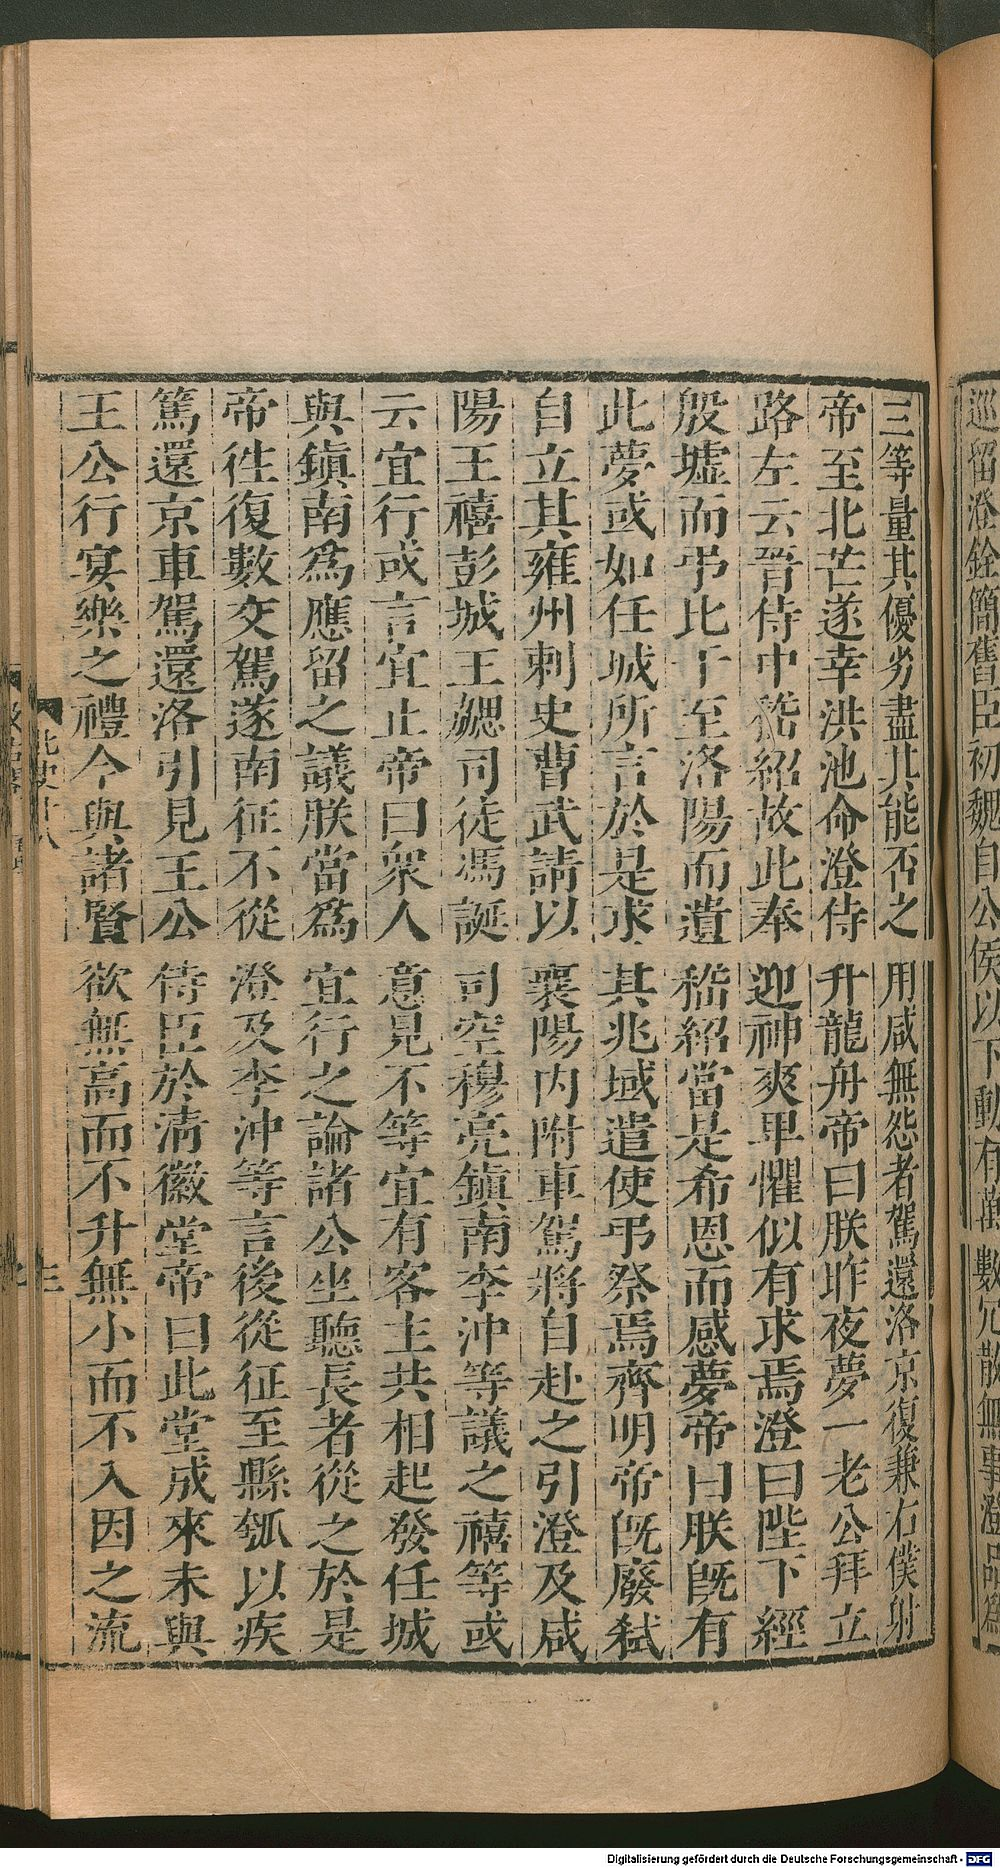 巡留澄銓簡舊臣初魏自公侯以下動有萬數冗散無事澄品爲
三等量其優劣盡其能否之用咸無怨者駕還洛京復兼右僕射
帝至北芒遂幸洪池命澄侍升龍舟帝曰朕昨夜夢一老公拜立
路左云晉侍中嵇紹故此奉迎神爽卑懼似有求焉澄曰陛下經
殷墟而弔比干至洛陽而遺嵇紹當是希恩而感夢帝曰朕旣有
此夢或如任城所言於是求其兆域遣使弔祭焉齊明帝旣廢弒
自立其雍州刺史曹武請以襄陽內附車駕將自赴之引澄及咸
陽王禧彭城王勰司徒馮誕司空穆亮鎭南李沖等議之禧等或
云宜行或言宜止帝曰衆人意見不等宜有客主共相起發任城
與鎭南爲應留之議朕當爲宜行之論諸公坐聽長者從之於是
帝徃復數交駕遂南征不從澄及李沖等言後從征至縣瓠以疾
篤還京車駕還洛引見王公侍臣於淸徽堂帝曰此堂成來未與
王公行宴樂之禮今與諸賢欲無高而不升無小而不入因之流
北史十八
三
Digitalisierung gefördert durch die Deutsche Forschungsgemeinschaft - DFG